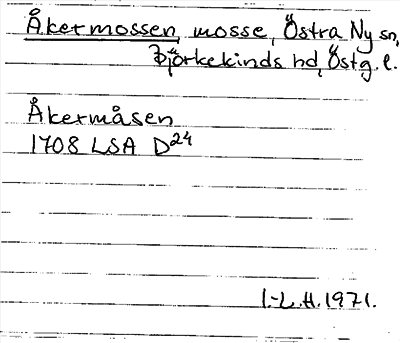 Åkermossen, mosse, Östra Ny sn,
Björkekinds hd, Östg. l.
Åkermåsen
1708 LSA D24
I.-L.H. 1971.